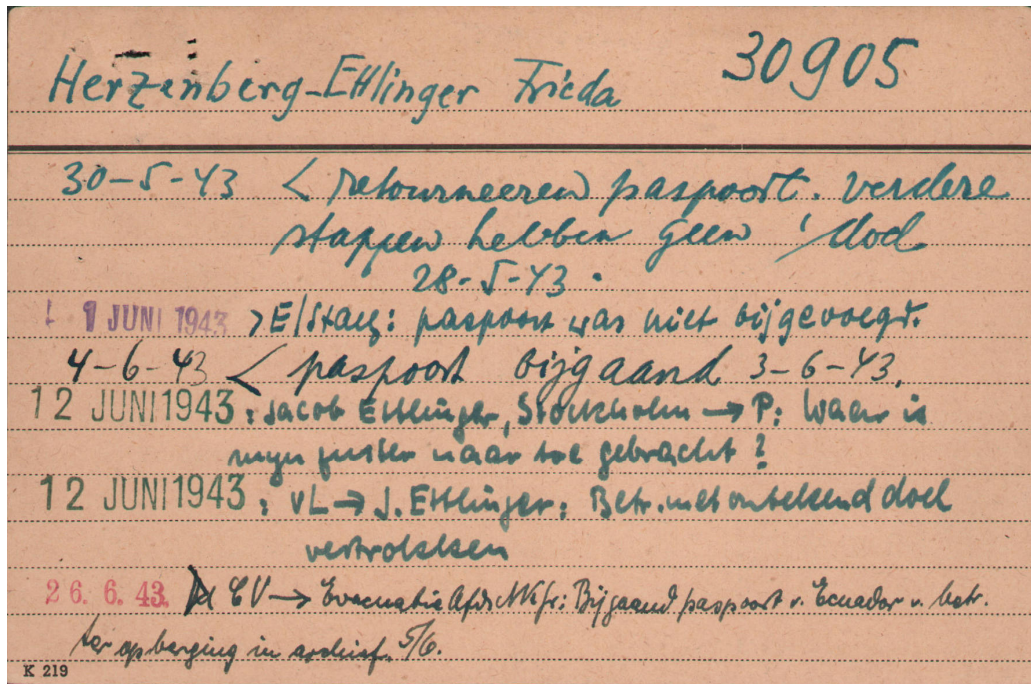 Herzenberg-Ettlinger Frieda 30905
30-5-43 < retourneeren paspoort. verdere
stappen hebben geen doel
28-5-43.
1 JUNI 1943 > E/Staez: paspoort was niet bijgevoegd.
4-6-43 < paspoort bijgaand 3-6-43.
12 JUNI 1943: Jacob Ettlinger, Stockholm → P: Waar is
mijn zuster naar toe gebracht?
12 JUNI 1943: vL → J. Ettlinger: Betr. met onbekend doel
vertrokken
26. 6. 43. CV → Evacuatie Afd: Bijgaand paspoort v. Ecuador v. betr.
ter opberging in archief. 5/6.
K 219